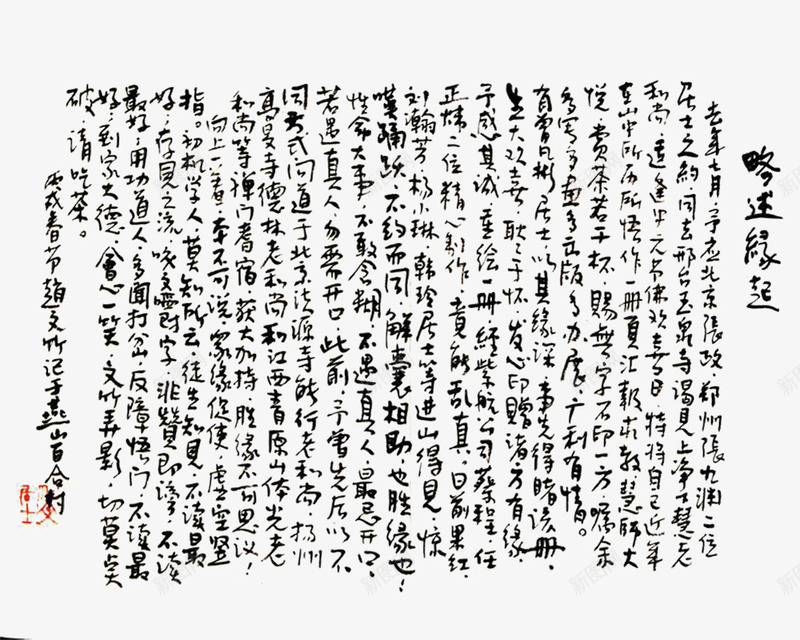 略述缘起
去年七月，予应北京张政、郑州张九润二位
居士之约，同去邢台玉泉寺谒见上净下慧老
和尚，适逢中元节佛欢喜日，特将自己近年
在山中所历所悟作一册页汇报求教，慧师大
悦，费茶若干杯，赐无字石印一方，嘱余
多写多画多出版，多办展，广利有情。
有曾凡彬居士，以其缘深，事先得睹该册，
生大欢喜，耿耿于怀，发心印赠诸方有缘。
予感其诚，重绘一册，经紫航公司蔡程、任
正炜二位精心制作，竟能乱真。日前果红、
刘瀚芳、杨小琳、韩玲居士等进山得见，惊
叹踊跃，不约而同，解囊相助，也胜缘也！
性命大事，不敢含糊。不遇真人，最忌开口，
若遇真人，勿需开口。此前，予曾先后以不
同方式问道于北京法源寺能行老和尚、扬州
高旻寺德林老和尚和江西青原山体光老
和尚等禅门耆宿，获大加持，胜缘不可思议！
向上一著，本不可说，众缘促使，虚空竖
指。初机学人，莫知所云，徒生知见，不读最
好，存见之流，咬文嚼字，非赞即谤，不读
最好，用功道人，多闻打岔，反障悟门，不读最
好，到家大德，会心一笑，文竹弄影，切莫笑
破，请吃茶。
丙戌春节赵文竹记于燕山百合村